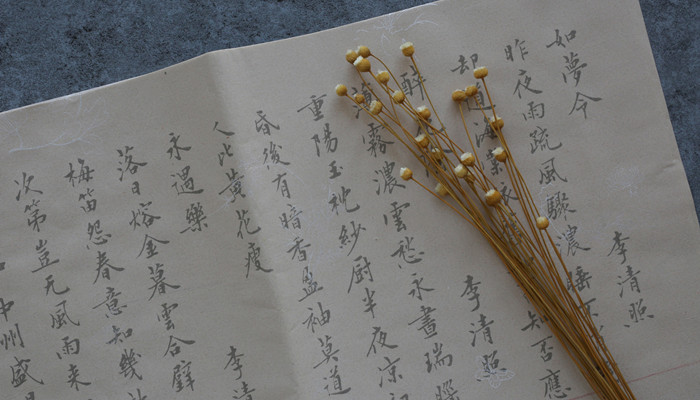 如夢令 李清照
昨夜雨疏風驟濃睡不
却道海棠依 知否應
醉 李清照
薄霧濃雲愁永晝瑞腦
重陽玉枕紗厨半夜凉初
昏後有暗香盈袖莫道
人比黄花瘦
永遇樂 李清
落日熔金暮雲合璧
梅笛怨春意知幾許
次第豈无風雨來
中州盛